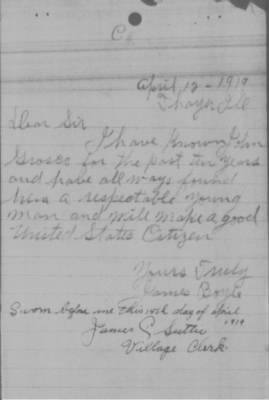 April 12 - 1919
Thayer Ill
Dear Sir
I have known John
Grosec for the past ten years
and have all ways found
him a respectable young
man and will make a good
United States Citizen
Yours Truly
James Boyle
Sworn before me this 12th day of april
1919
James C Suttie
Village Clerk